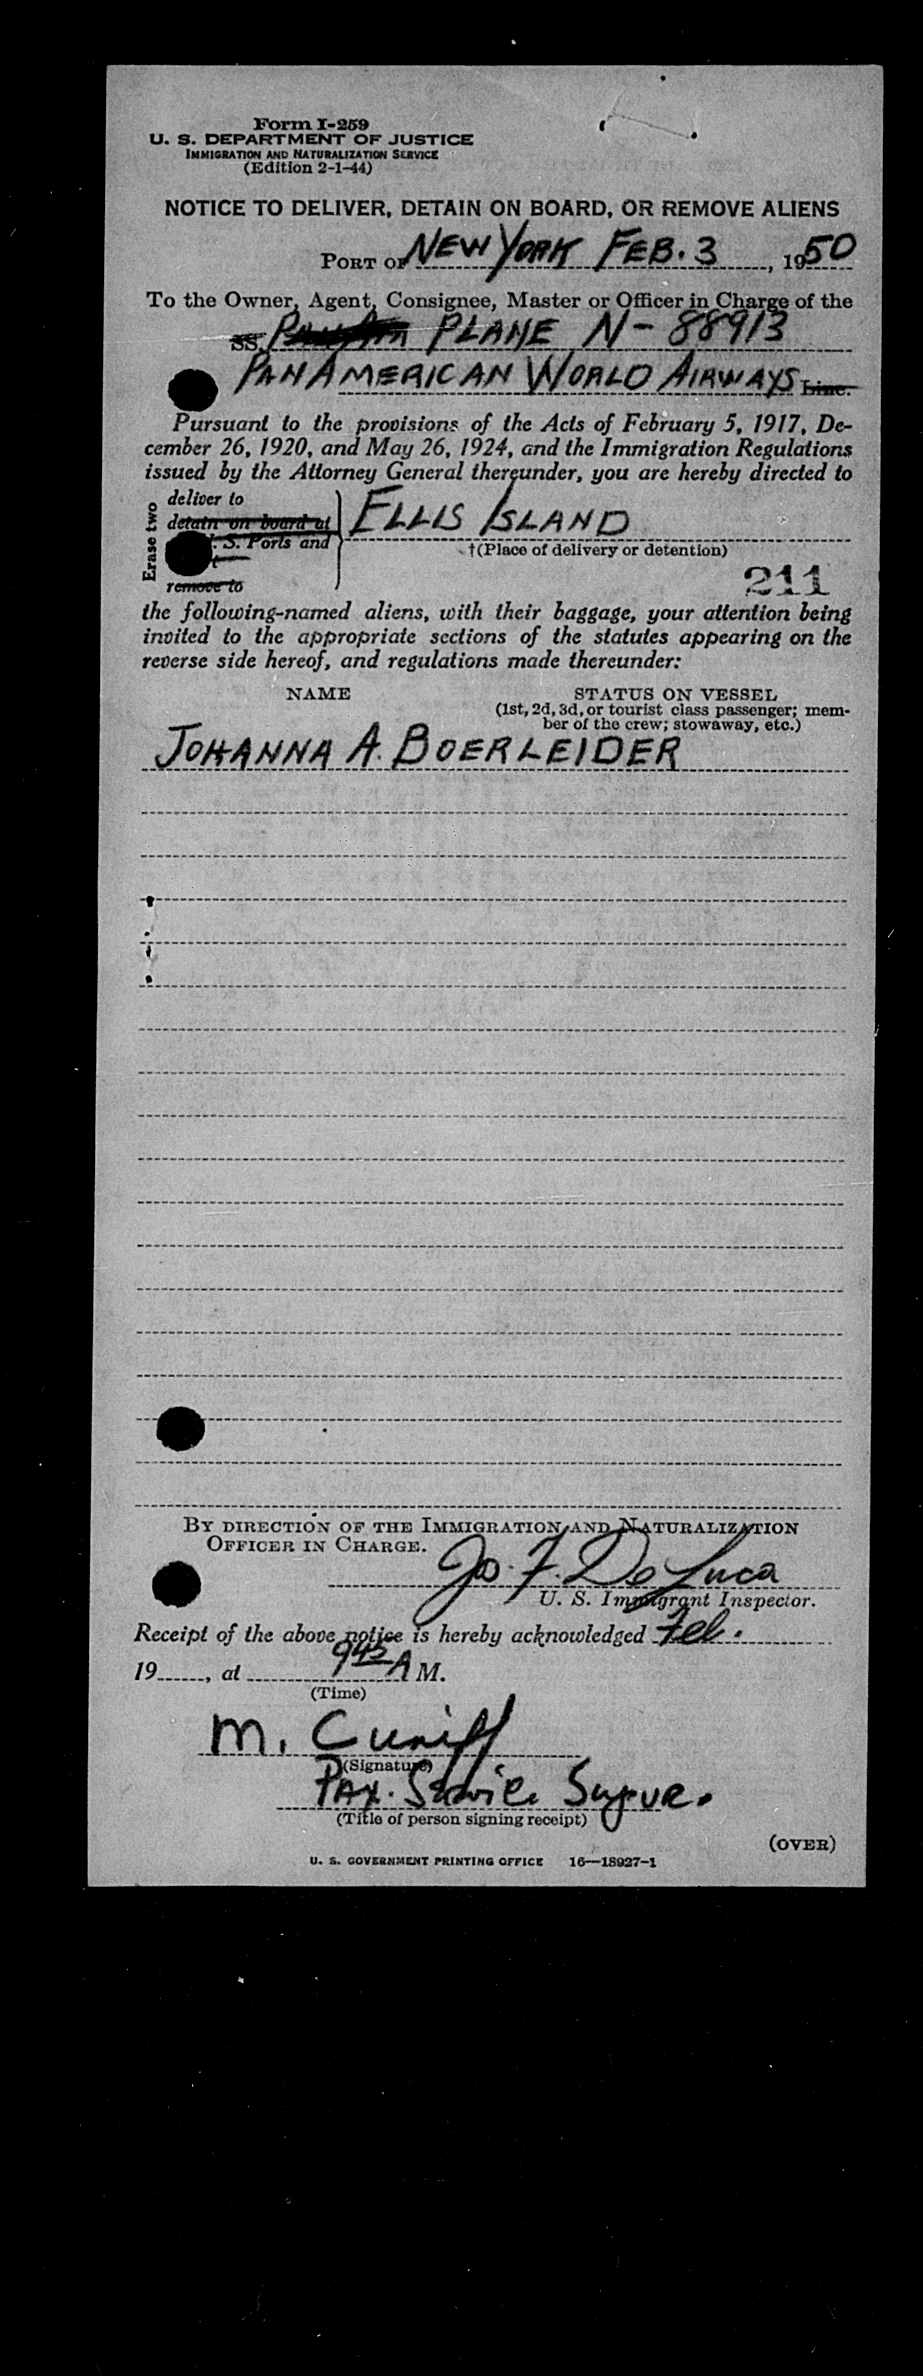 Form I-259
U. S. DEPARTMENT OF JUSTICE
IMMIGRATION AND NATURALIZATION SERVICE
(Edition 2-1-44)
NOTICE TO DELIVER, DETAIN ON BOARD, OR REMOVE ALIENS
PORT OF NEW YORK FEB. 3, 1950
To the Owner, Agent, Consignee, Master or Officer in Charge of the
SS. PLANE N-88913
PAN AMERICAN WORLD AIRWAYS Line.
Pursuant to the provisions of the Acts of February 5, 1917, De-
cember 26, 1920, and May 26, 1924, and the Immigration Regulations
issued by the Attorney General thereunder, you are hereby directed to
Erase two
deliver to
detain on board at
. S. Ports and
remove to
ELLIS ISLAND
†(Place of delivery or detention)
211
the following-named aliens, with their baggage, your attention being
invited to the appropriate sections of the statutes appearing on the
reverse side hereof, and regulations made thereunder:
NAME STATUS ON VESSEL
(1st, 2d, 3d, or tourist class passenger; mem-
ber of the crew; stowaway, etc.)
JOHANNA A. BOERLEIDER
BY DIRECTION OF THE IMMIGRATION AND NATURALIZATION
OFFICER IN CHARGE.
Jo. F. De Luca
U. S. Immigrant Inspector.
Receipt of the above notice is hereby acknowledged Feb.
19......, at 945 A M.
(Time)
M. Cuniff
(Signature)
Pax. Service Supvr.
(Title of person signing receipt)
(OVER)
U. S. GOVERNMENT PRINTING OFFICE 16—18927-1